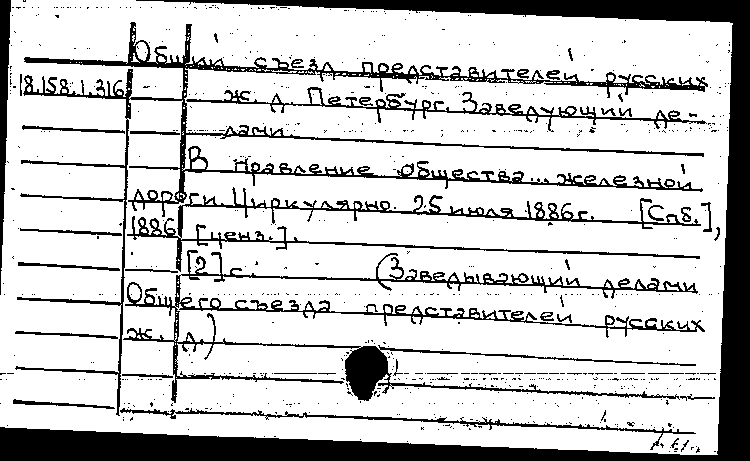 Общий съезд представителей русских
18.158.1.316
ж. д. Петербург. Заведующий де-
лами
В правление общества... железной
дороги. Циркулярно. 25 июля 1886 г. [Спб.],
1886 [ценз.].
[2] с. (Заведывающий делами
Общего съезда представителей русских
ж. д.).